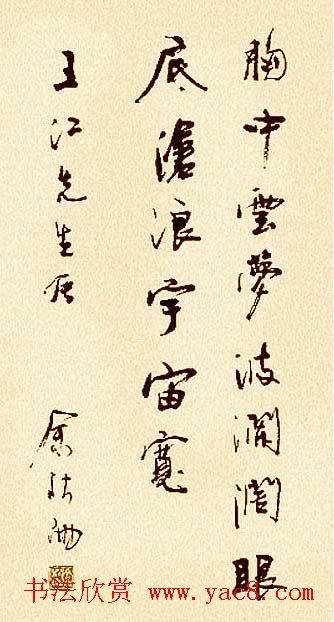 胸中雲夢波澜濶眼
底滄浪宇宙寬
王江先生
余秋雨
书法欣赏 www.yac8.com